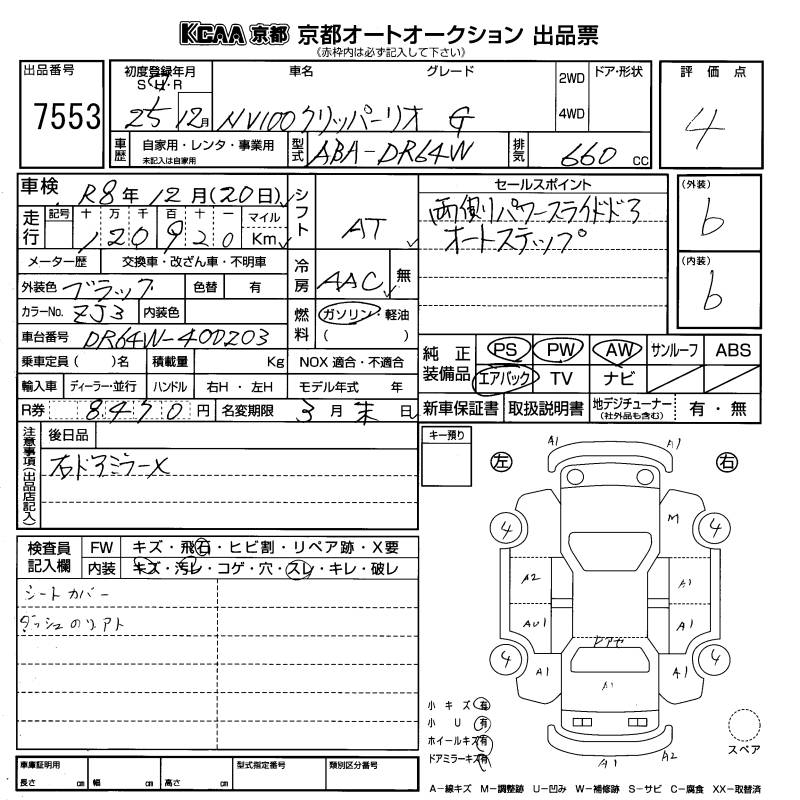 KCAA 京都 京都オートオークション 出品票
(赤枠内は必ず記入して下さい)
出品番号
7553
初度登録年月
S・H・R
25年12月
車名 グレード
NV100クリッパーリオ G
2WD
4WD
ドア・形状
評価点
4
車歴
自家用・レンタ・事業用
未記入は自家用
型式
ABA-DR64W
排気
660 CC
車検
R8年12月(20日)
走行
記号 十 万 千 百 十 一
120920
マイル
Km
シフト
AT
セールスポイント
両側パワースライドドア
オートステップ
(外装)
b
(内装)
b
メーター歴 交換車・改ざん車・不明車
外装色 ブラック 色替 有
冷房
AAC
無
カラーNo. ZJ3 内装色
燃料
ガソリン・軽油
( )
車台番号 DR64W-400203
乗車定員( )名 積載量 Kg NOX 適合・不適合
輸入車 ディーラー・並行 ハンドル 右H・左H モデル年式 年
R券 8470円 名変期限 3月末日
純正装備品
PS PW AW サンルーフ ABS
エアバック TV ナビ
新車保証書 取扱説明書 地デジチューナー
(社外品も含む)
有・無
注意事項(出品店記入)
後日品
右ドアミラーX
キー預り
検査員記入欄
FW キズ・飛石・ヒビ割・リペア跡・X要
内装 キズ・汚レ・コゲ・穴・スレ・キレ・破レ
シートカバー
ダッシュのリアト
左
右
A1
A1
4
4
M
A2
A1
AU1
A1
ドアヤ
4
4
A1
A1
A1
A1
A2
小キズ 有
小U 有
ホイールキズ 有
ドアミラーキズ 有
スペア
車庫証明用
長さ cm 幅 cm 高さ cm
型式指定番号
類別区分番号
A-線キズ M-調整跡 U-凹み W-補修跡 S-サビ C-腐食 XX-取替済